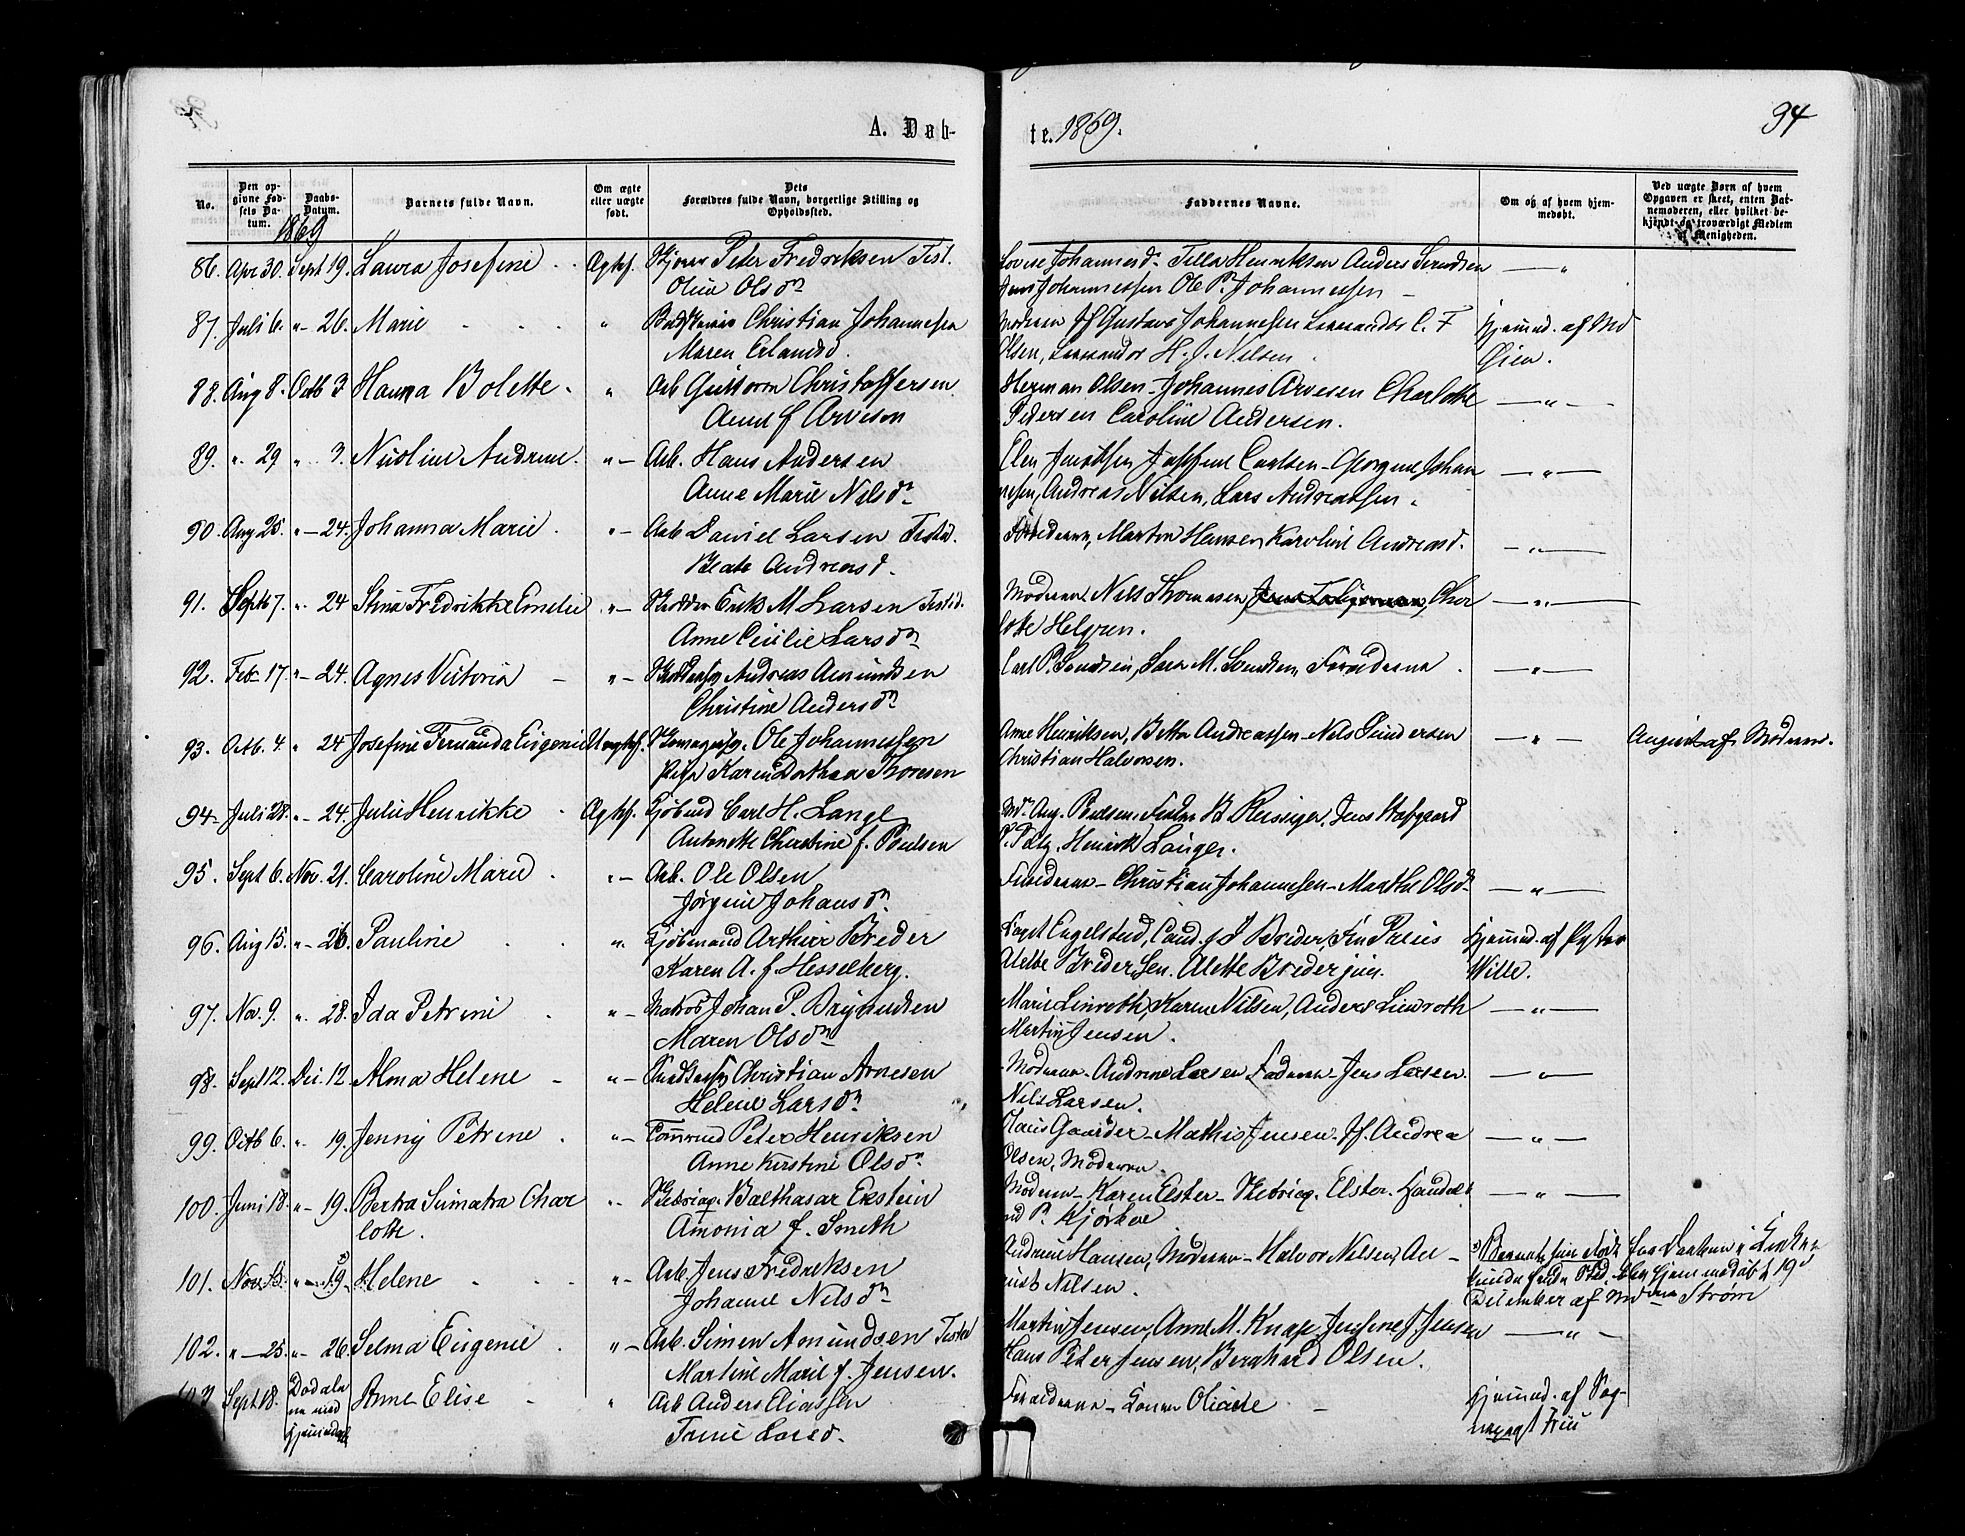 A. Døb-
te. 1869.
94
No.
Den op-
givne Fød-
sels Da-
tum.
Daabs-
Datum.
Barnets fulde Navn.
Om ægte
eller uægte
født.
Dets
Forældres fulde Navn, borgerlige Stilling og
Opholdssted.
Faddernes Navne.
Om og af hvem hjem-
medøbt.
Ved uægte Børn af hvem
Opgaven er skeet, enten Bar-
nemoderen, eller hvilket be-
kjendt og troværdigt Medlem
af Menigheden.
1869
86. Apr. 30. Sept 19. Laura Josefine Ægtef. Peter Fredriksen Tist.
Oline Olsdr
Johannesd. Tilla Henriksen Anders
Johannessen Ole P. Johannessen
87. Juli 6. " 26. Marie " Christian Johannesen
Maren Erlandsd.
Moderen Gustava Johannesen C. F
Olsen, H. J. Nilsen.
Hjemmed. af Md
Gien.
88. Aug 8. Octb 3 Hanna Bolette. " Arb Guttorm Christoffersen
Anne f Arvesen
Herman Olsen - Johannes Arvesen Charlotte
Pedersen Caroline Andersen.
89. " 29 " 3. Nicoline Andrine. " Arb. Hans Andersen
Anne Marie Nilsdr
Elen Josefine Carlsen - Georgine Johan
nesen, Andreas Nilsen, Lars Andreassen.
90. Aug 25. " 24. Johanna Marie. " Arb David Larsen Tisted.
Beate Andreasd.
Forældrene, Martin Hansen, Karoline Andreasd.
91. Sept 7. " 24 Stina Fredrikke Emelie " Erik M Larsen Tisted.
Anne Cecilie Larsdr
Moderen Nils Thomasen, Char
lotte Helgren.
92. Feb. 17. " 24. Agnes Victoria " Andreas Amundsen
Christine Andersdr
Carl P. Svendsen, Sara M. Svendsen, Forældrene.
93. Octb. 4. " 24 Josefine Fernanda Eugenie Uægtef. Ole Johannessen
Pige Karen Dorthea Thoresen
Anne Henriksen, Betta Andreassen - Nils Gundersen
Christian Halvorsen.
Angivet af Moderen.
94. Juli 28. " 24. Julie Henrikke Ægtef. Kjøbmd Carl H. Lange
Antonette Christine f. Poulsen
Md. Aug. Poulsen, B Reisinger, Jens
Henrik Langer.
95. Sept 6. Nov. 21. Caroline Marie " Arb. Ole Olsen
Jørgine Johansdr
Forældrene - Christian Johannesen - Marthe Olsdr
96. Aug 15. " 26. Pauline " Kjøbmand Arthur Breder
Karen A. f. Hesselberg.
Capt Engelstad, Cand. J Breder, Frk Preus
Alette Breder Sen. Alette Breder jun.
Hjemmed. af Pastor
Wille.
97. Nov. 9. " 28. Ida Petrine " Matros Johan P. Brynildsen
Maren Olsdr
Marie Linroth, Karen Nilsen, Anders Linroth
Martin Jensen.
98. Sept 12. Dec. 12. Alma Helene " Christian Arnesen
Helene Larsdr
Moderen - Andrine Larsen Faderen - Jens Larsen.
Nils Larsen.
99. Octb 6. " 19. Jenny Petrine. " Tømmd Peter Henriksen
Anne Kirstine Olsdr
Hans Gaarder - Mathis Jensen - Jf. Andrea
Olsen, Moderen
100. Juni 18. " 19. Berta Sumatra Char
lotte. " Skibsrig. Balthasar Ekstein
Amonia f. Smith
Moderen - Karen Elster - Skibsrig. Elster. Handels
md P. Kjørboe
101. Nov. 15. " 19. Helene " Arb. Jens Fredriksen
Johanne Nilsdr
Andrine Hansen, Moderen - Halvor Nilsen, An
Nilsen.
Barnet før Daaben i Kirken
kunde finde Sted, blev hjemmedøbt 19de
December af Strøm
102. " 25. " 26. Selma Eugenie " Arb. Simen Amundsen Tisted
Martine Marie f. Jensen.
Martin Jensen, Anne M. Knap, Josefine J. Jensen
Hans Peter Jensen, Bernhard Olsen.
103 Sept 18. Dødala
me med
Hjemmedaab Anne Elise " Arb Anders Eliassen
Larsd.
Forældrene - Konen Oliane
Hjemmed. af Sog-
nepræst Friis